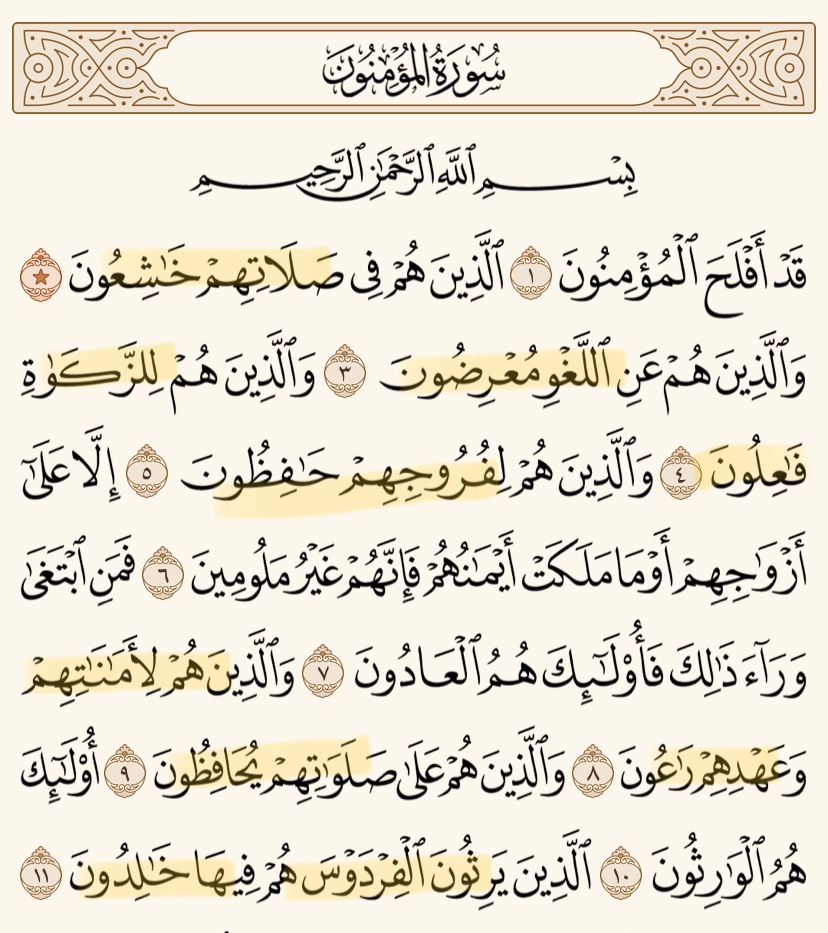 سُورَةُ المُؤْمِنُونَ
بِسْمِ ٱللَّهِ ٱلرَّحْمَٰنِ ٱلرَّحِيمِ
قَدْ أَفْلَحَ ٱلْمُؤْمِنُونَ ١ ٱلَّذِينَ هُمْ فِى صَلَاتِهِمْ خَٰشِعُونَ ★
وَٱلَّذِينَ هُمْ عَنِ ٱللَّغْوِ مُعْرِضُونَ ٣ وَٱلَّذِينَ هُمْ لِلزَّكَوٰةِ
فَٰعِلُونَ ٤ وَٱلَّذِينَ هُمْ لِفُرُوجِهِمْ حَٰفِظُونَ ٥ إِلَّا عَلَىٰٓ
أَزْوَٰجِهِمْ أَوْ مَا مَلَكَتْ أَيْمَٰنُهُمْ فَإِنَّهُمْ غَيْرُ مَلُومِينَ ٦ فَمَنِ ٱبْتَغَىٰ
وَرَآءَ ذَٰلِكَ فَأُو۟لَٰٓئِكَ هُمُ ٱلْعَادُونَ ٧ وَٱلَّذِينَ هُمْ لِأَمَٰنَٰتِهِمْ
وَعَهْدِهِمْ رَٰعُونَ ٨ وَٱلَّذِينَ هُمْ عَلَىٰ صَلَوَٰتِهِمْ يُحَافِظُونَ ٩ أُو۟لَٰٓئِكَ
هُمُ ٱلْوَٰرِثُونَ ١٠ ٱلَّذِينَ يَرِثُونَ ٱلْفِرْدَوْسَ هُمْ فِيهَا خَٰلِدُونَ ١١